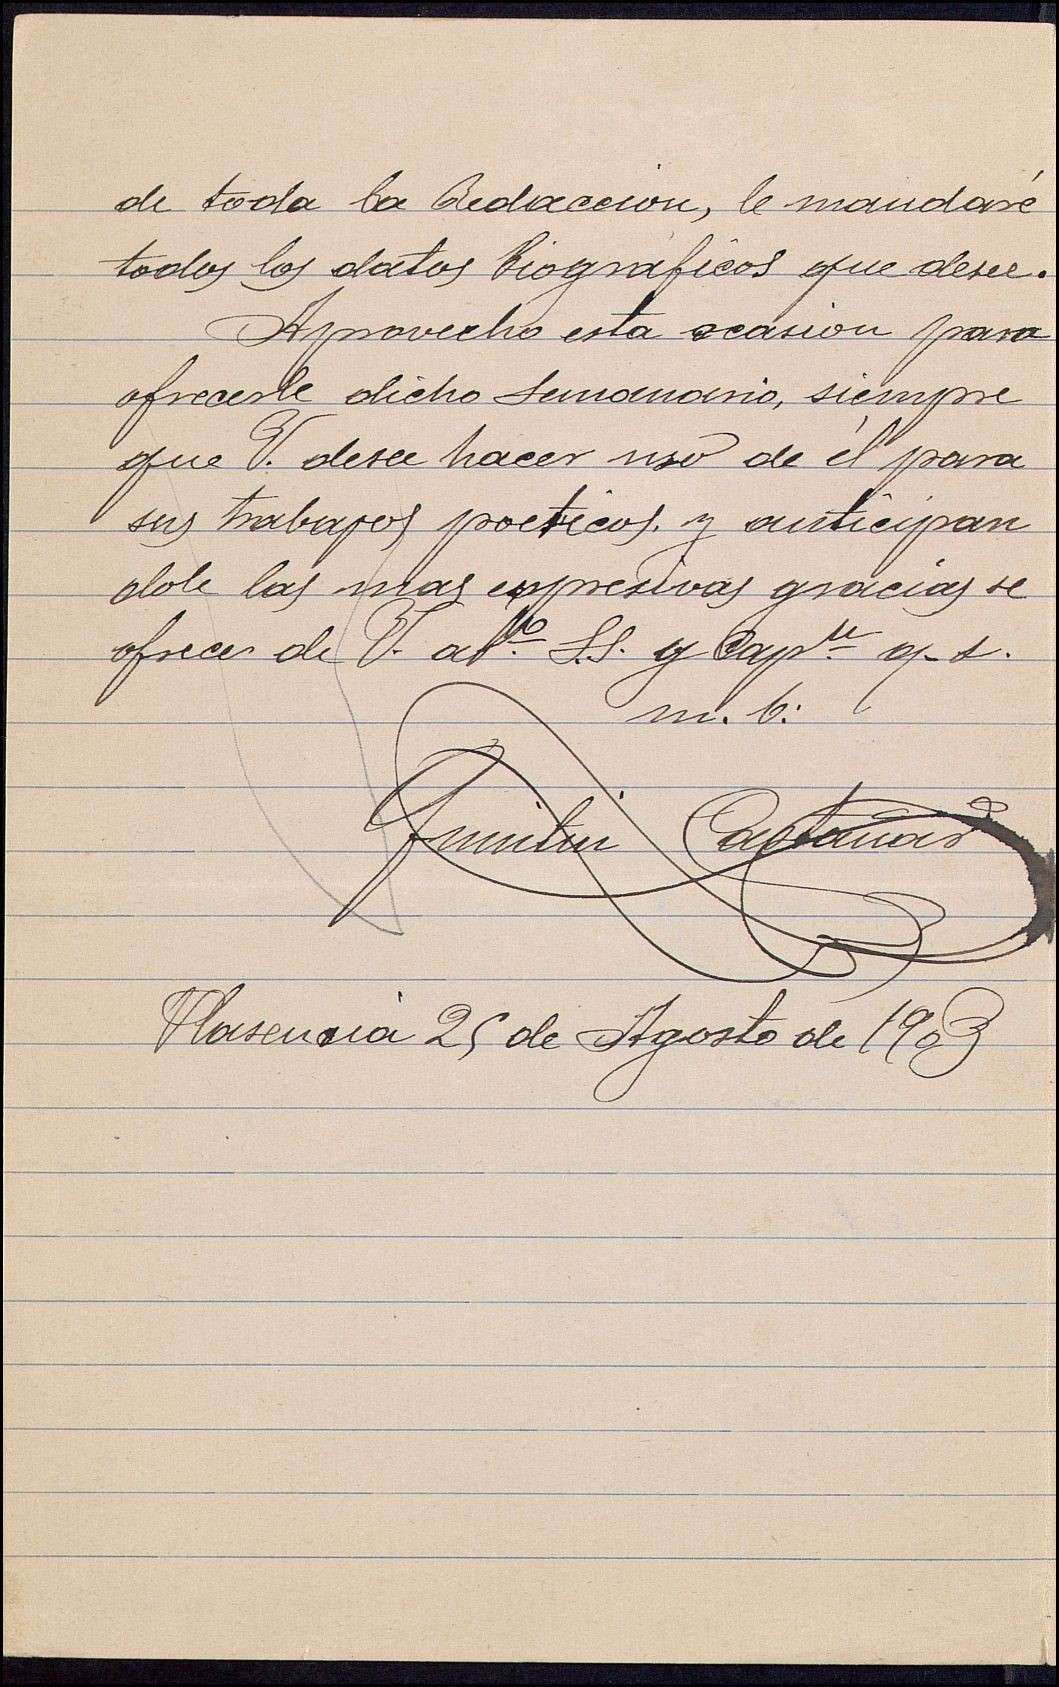 de toda la Redaccion, le mandaré
todos los datos biograficos que desee.
Aprovecho esta ocasion para
ofrecerle dicho semanario, siempre
que V. desee hacer uso de él para
sus trabajos poeticos. y anticipan
dole las mas expresivas gracias se
ofrece de V. at.º S.S. y Cap.n q. s.
m. b:
Quintin Castañar
Plasencia 25 de Agosto de 1903